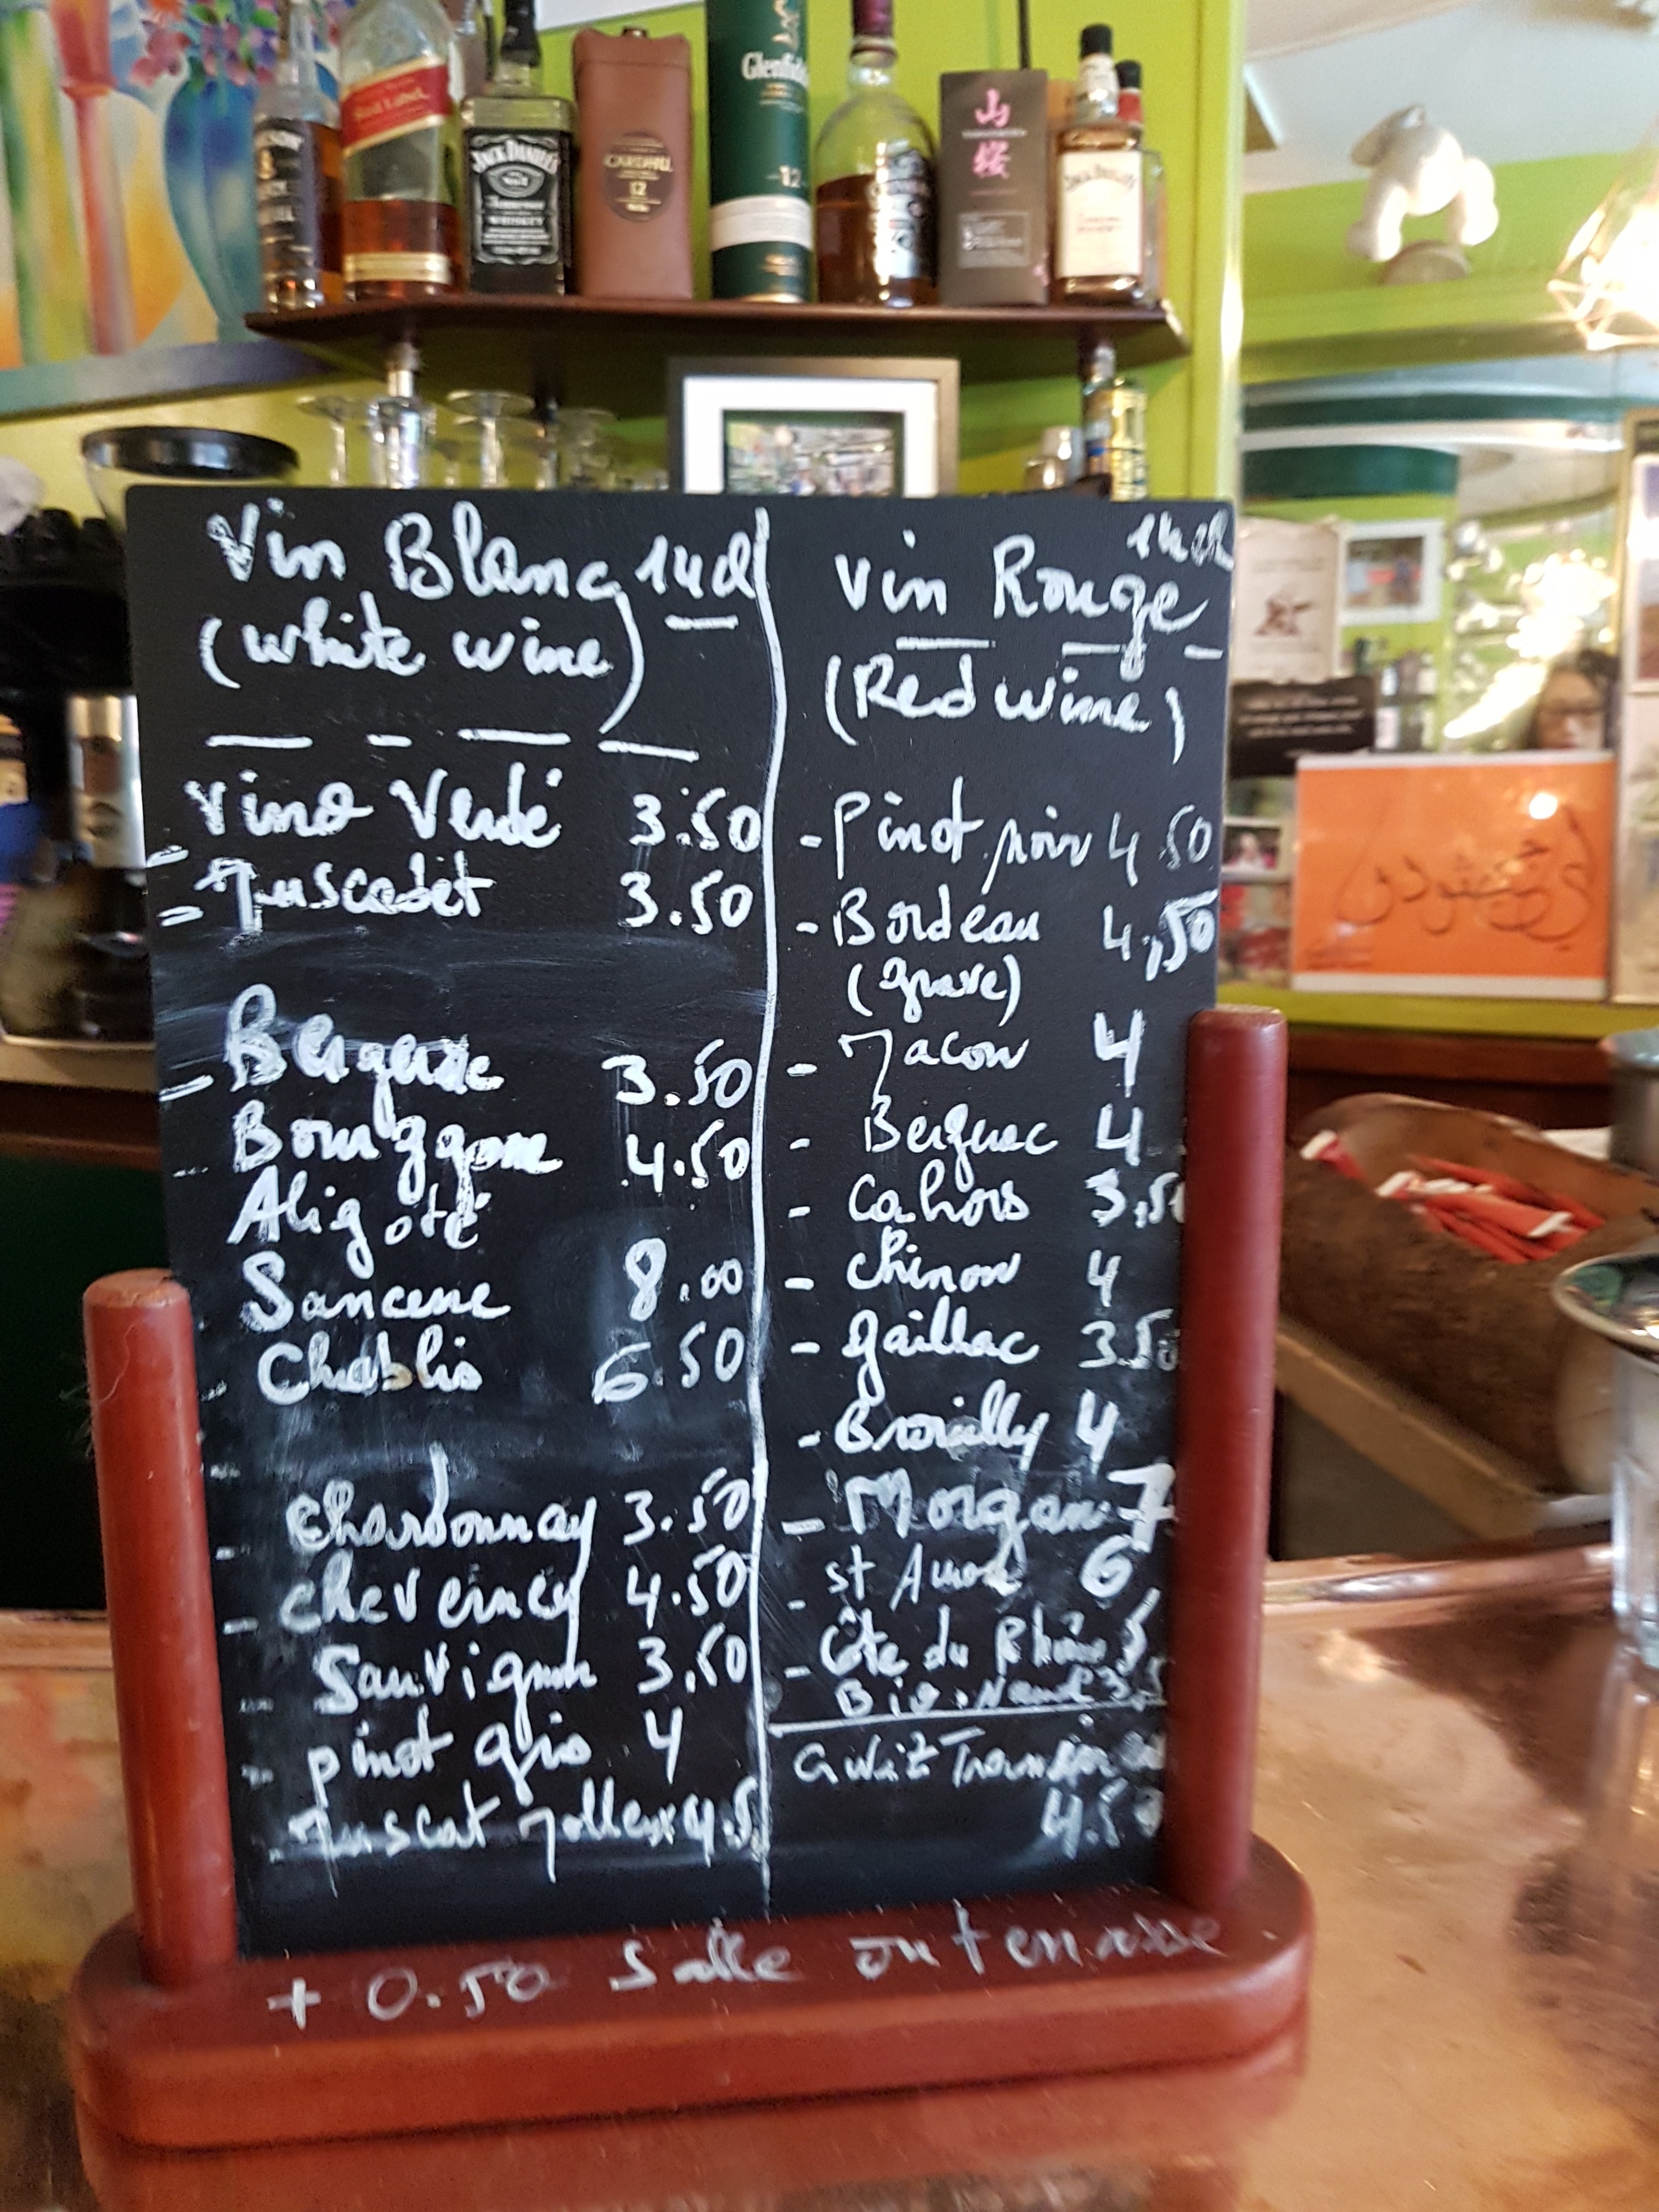 RED LABEL
JACK DANIEL'S
WHISKEY
CARDHU
12
Glenfiddich
12
山
桜
JACK DANIEL'S
Vin Blanc 14cl
(White wine)
Vino Verdé 3.50
Muscadet 3.50
Bergerac 3.50
Bourggone 4.50
Aligoté
Sancerre 8.00
Chablis 6.50
Chardonnay 3.50
Cheverney 4.50
Sauvignon 3.50
pinot gris 4
Muscat Molleux 4.5
14cl
Vin Rouge
(Red wine)
- Pinot noir 4.50
- Bordeau 4,50
(grave)
- Macon 4
- Bergerac 4
- Cahors 3.50
- Chinon 4
- Gaillac 3.50
- Brouilly 4
- Morgon 7
- St Amour 6
- Côte du Rhône 5
Bio. 3.5
4.50
+ 0.50 Salle ou terrasse